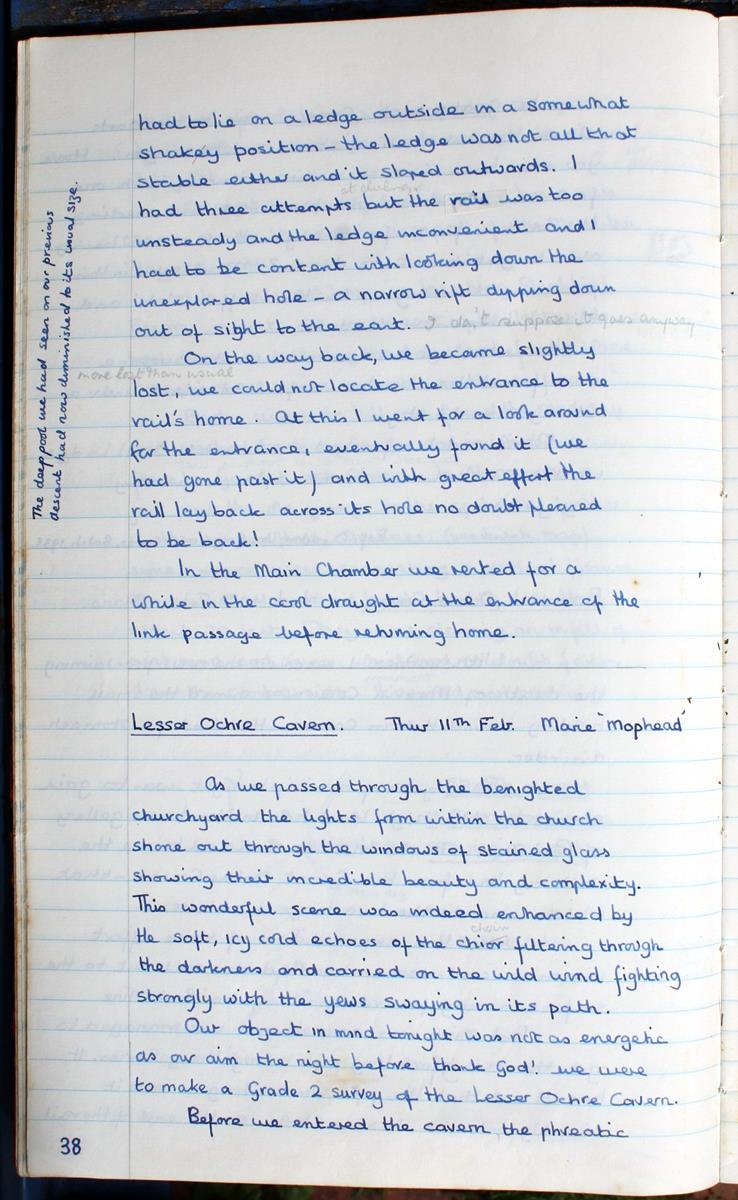 had to lie on a ledge outside in a somewhat
shakey position – the ledge was not all that
stable either and it sloped outwards. I
had three attempts but the rail was too
unsteady and the ledge inconvenient and I
had to be content with looking down the
unexplored hole – a narrow rift dipping down
out of sight to the east. I don't suppose it goes anyway
On the way back, we became slightly
more lost than usual
lost, we could not locate the entrance to the
rail's home. At this I went for a look around
for the entrance, eventually found it (we
had gone past it) and with great effort the
rail lay back across its hole no doubt pleased
to be back!
In the Main Chamber we rested for a
while in the cool draught at the entrance of the
link passage before returning home.
The deep pool we had seen on our previous
descent had now diminished to its usual size.
Lesser Ochre Cavern. Thur 11th Feb. Marie 'Mophead'
As we passed through the benighted
churchyard the lights form within the church
shone out through the windows of stained glass
showing their incredible beauty and complexity.
This wonderful scene was indeed enhanced by
the soft, icy cold echoes of the chior filtering through
the darkness and carried on the wild wind fighting
strongly with the yews swaying in its path.
Our object in mind tonight was not as energetic
as our aim the night before thank God! we were
to make a Grade 2 survey of the Lesser Ochre Cavern.
Before we entered the cavern the phreatic
38